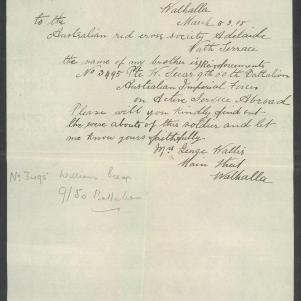 Walhalla
March 5. 3. 18
to the
Australian red cross society Adelaide
North Terrace
the name of my brother is
No 3495 Pte W. 9th 50th Battalion
Reinforcements
Australian Imperial Forces
on Active Service Abroad
Please will you kindly find out
the were abouts of this soldier and let
me know yours faithfully
Mrs George Wallis
Main Street
Walhalla
No 3495 William
9/50 Battalion